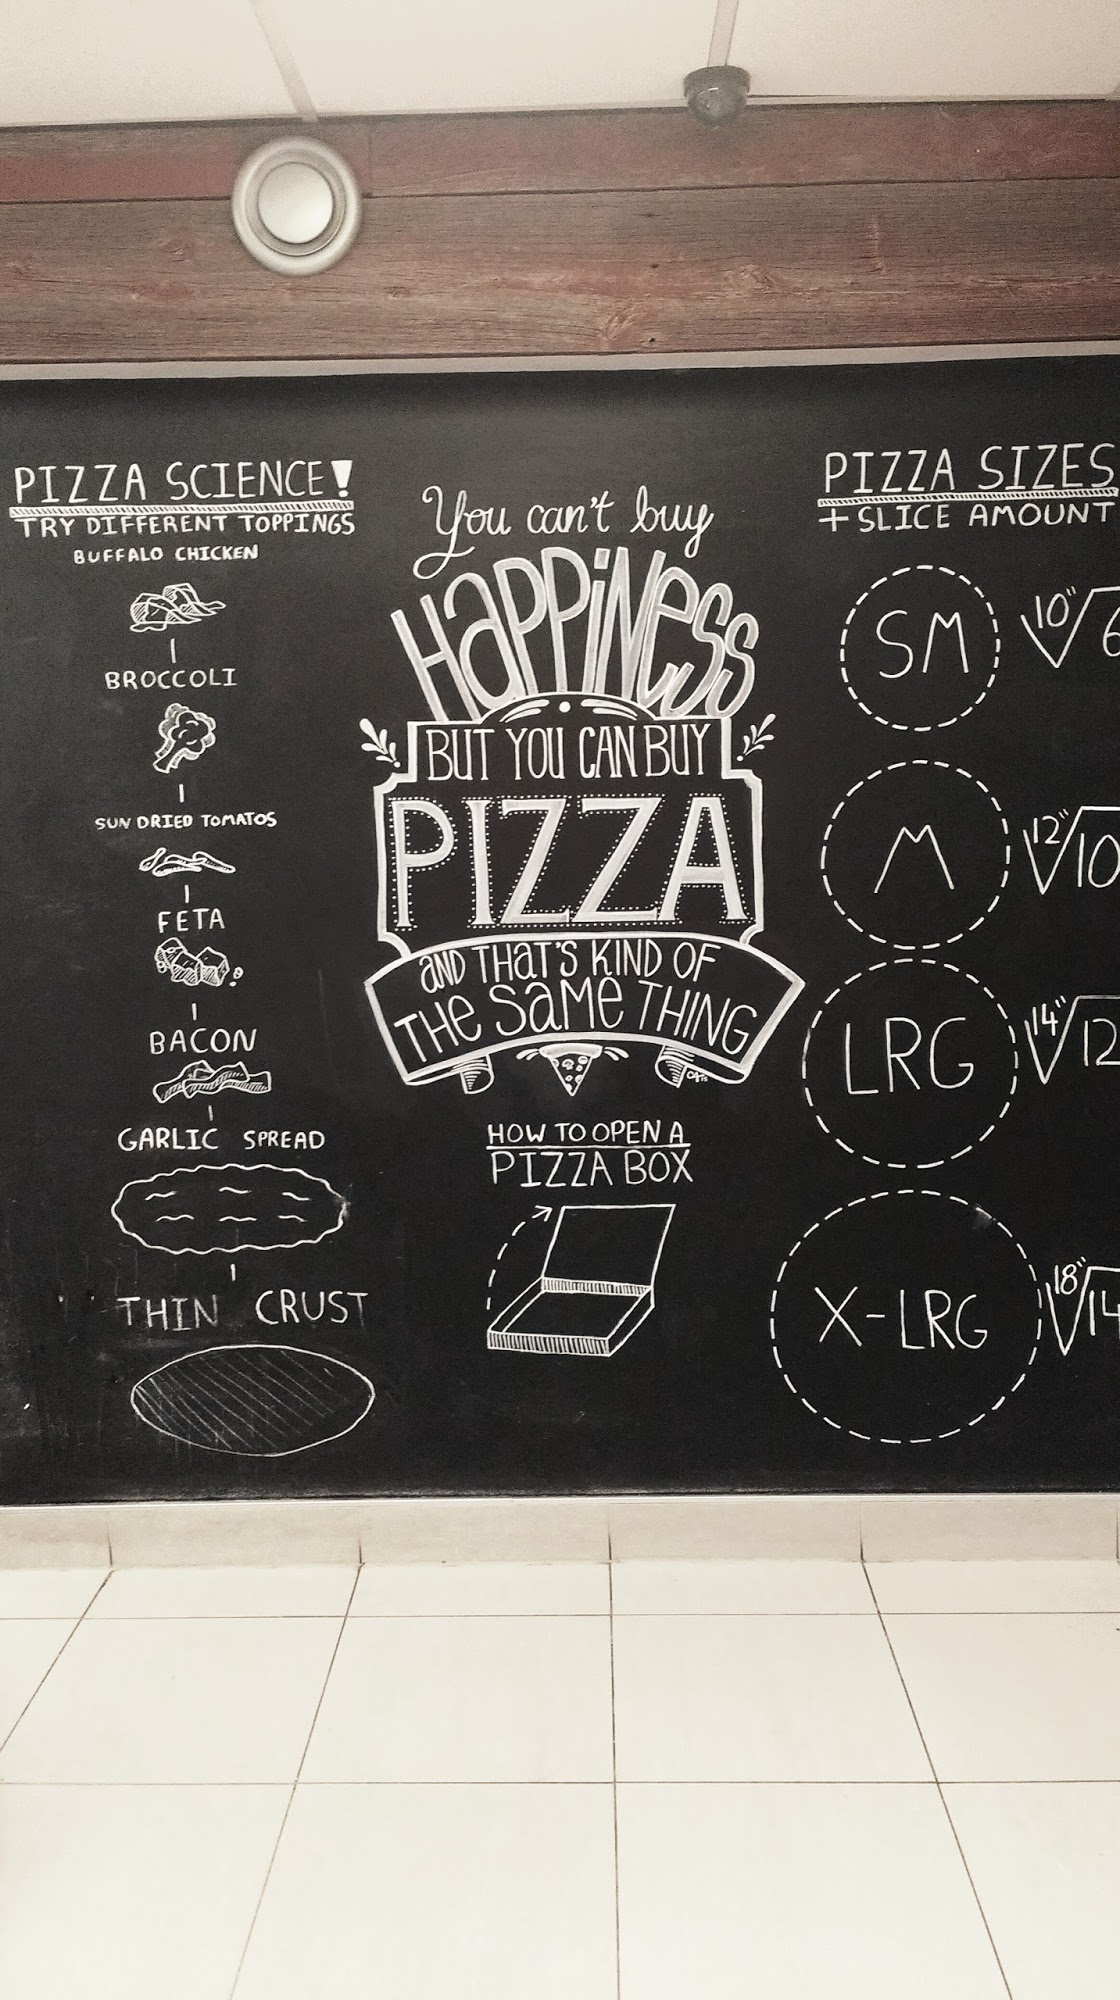 PIZZA SCIENCE!
TRY DIFFERENT TOPPINGS
BUFFALO CHICKEN
BROCCOLI
SUN DRIED TOMATOS
FETA
BACON
GARLIC SPREAD
THIN CRUST
You can't buy
HAPPINESS
BUT YOU CAN BUY
PIZZA
AND THAT'S KIND OF
THE SAME THING
HOW TO OPEN A
PIZZA BOX
PIZZA SIZES
+ SLICE AMOUNT
SM 10"
M 12" 10
LRG 14" 12
X-LRG 18" 14